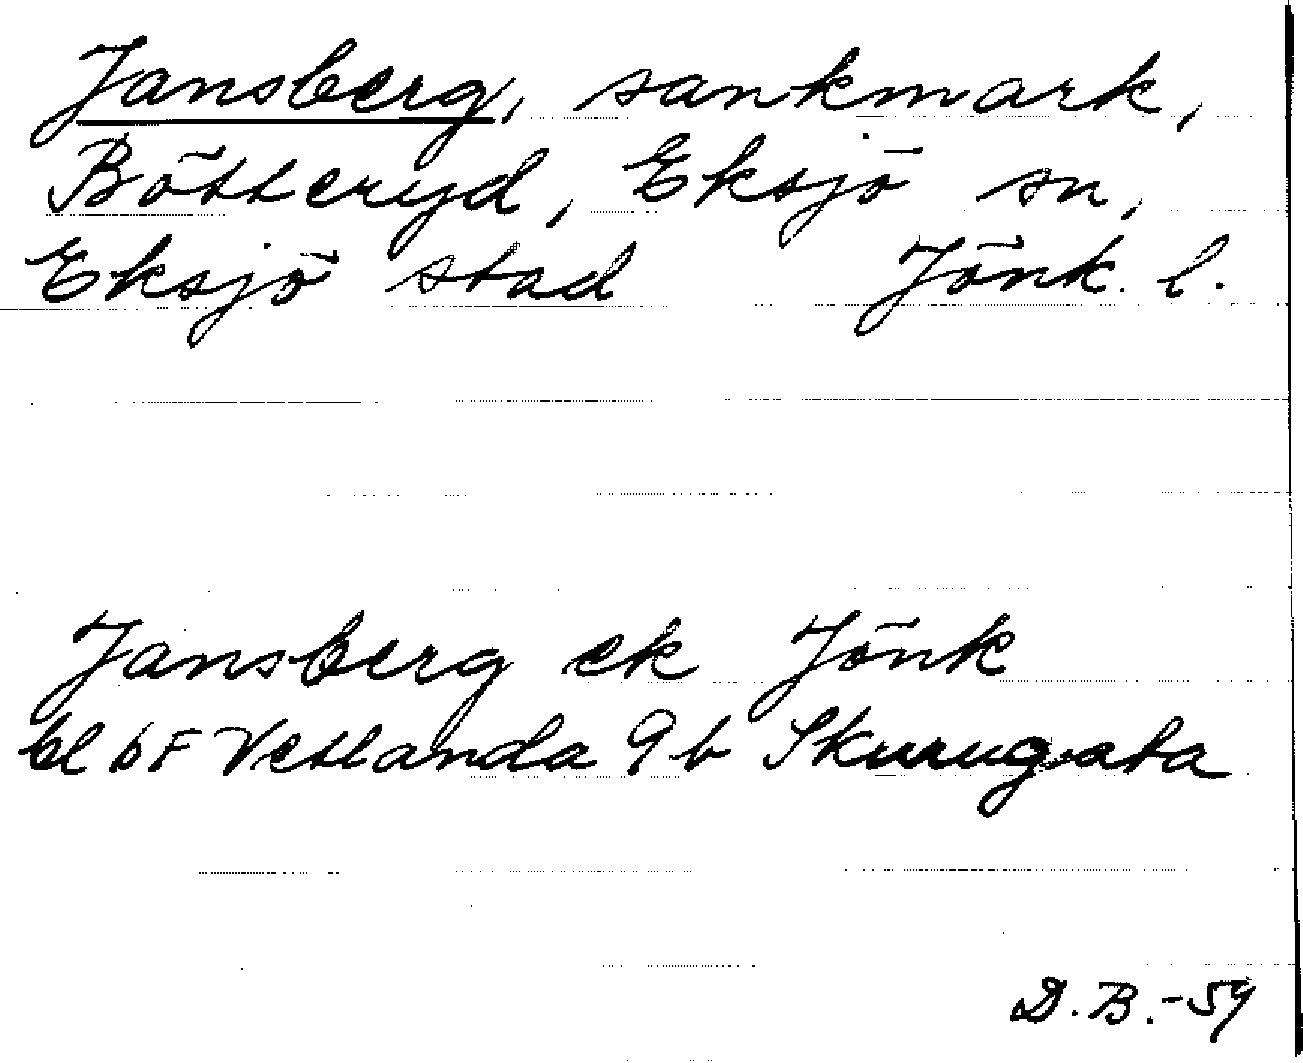 Jansberg, sankmark,
Bötteryd, Eksjö sn,
Eksjö stad Jönk. l.
Jansberg ek Jönk
bl 6F Vetlanda 9b Skurugata
D.B.-59